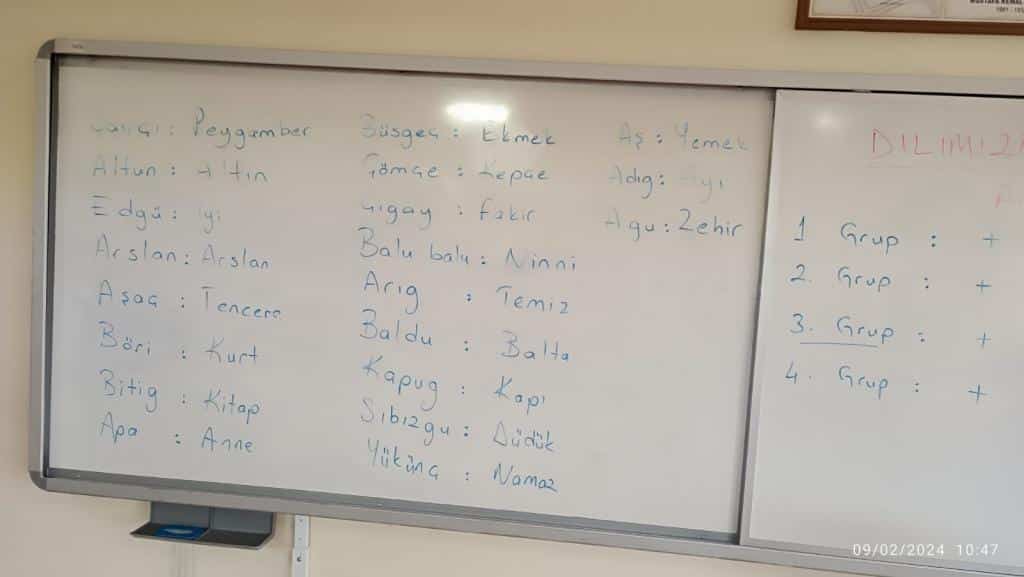 Peygamber
Altun : Altın
Edgü : iyi
Arslan : Arslan
Aşaç : Tencere
Böri : Kurt
Bitig : Kitap
Apa : Anne
Büsgeç : Ekmek
Çömçe : Kepçe
Çıgay : fakir
Balu balu : Ninni
Arıg : Temiz
Baldu : Balta
Kapug : Kapı
Sıbızgu : Düdük
Yükünç : Namaz
Aş : Yemek
Adıg : Ayı
Agu : Zehir
DİLİMİZ
1 Grup : +
2. Grup : +
3. Grup : +
4. Grup : +
MUSTAFA KEMAL
09/02/2024 10:47